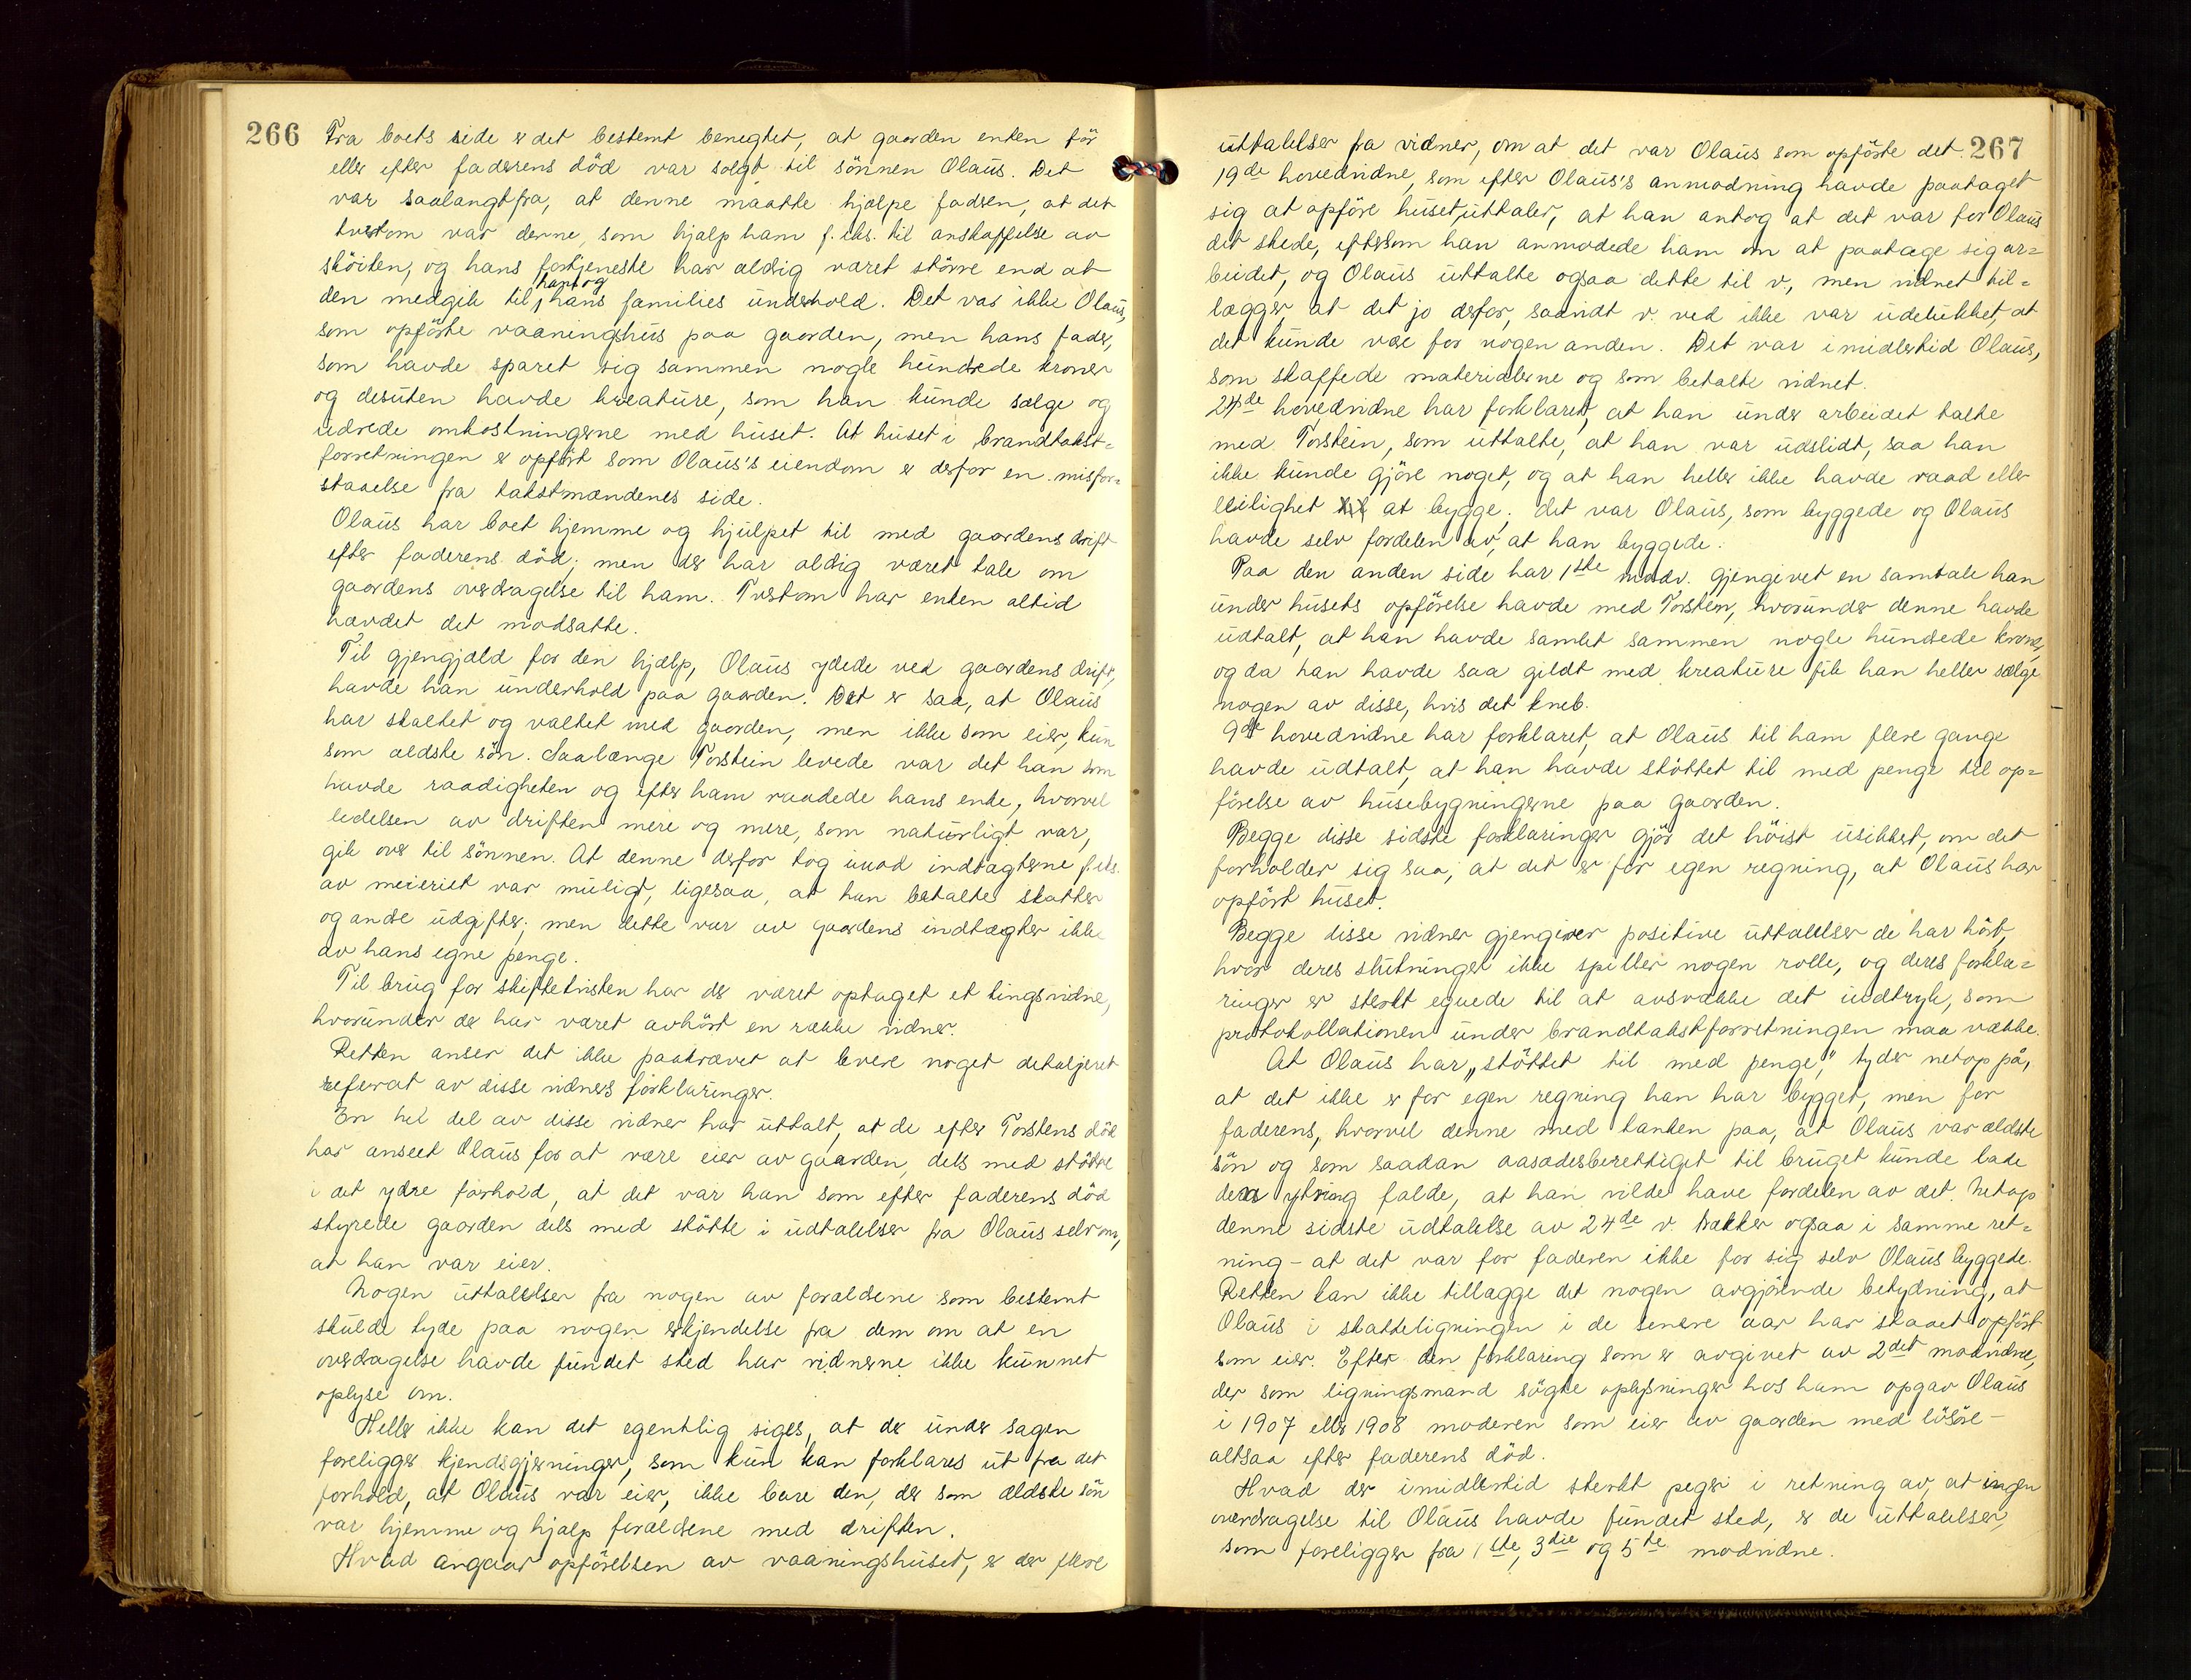 266
Fra boets side er det bestemt benegtet, at gaarden enten før
eller efter faderens död var solgt til sönnen Olaus. Det
var saalangtfra, at denne maatte hjælpe faderen, at det
tvertom var denne, som hjalp ham f. eks. til anskaffelse av
sköiten, og hans fortjeneste har aldrig været större end at
den medgik til ham og hans families underhold. Det var ikke Olaus,
som opförte vaaningshus paa gaarden, men hans fader,
som havde sparet sig sammen nogle hundrede kroner
og desuten havde kreature, som han kunde sælge og
udrede omkostningerne med huset. At huset i brandtakst=
forretningen er opfört som Olaus's eiendom er derfor en misfor=
staaelse fra takstmændenes side.
Olaus har boet hjemme og hjulpet til med gaardens drift
efter faderens död; men der har aldrig været tale om
gaardens overdragelse til ham. Tvertom har enken altid
hævdet det modsatte.
Til gjengjæld for den hjælp, Olaus ydede ved gaardens drift,
havde han underhold paa gaarden. Det er saa, at Olaus
har skaltet og valtet med gaarden, men ikke som eier, kun
som ældste sön. Saalænge Torstein levede var det han som
havde raadigheten og efter ham raadede hans enke, hvorvel
ledelsen av driften mere og mere, som naturligt var,
gik over til sönnen. At denne derfor tog imod indtægterne f. eks.
av meieriet var muligt, ligesaa, at han betalte skatter
og andre udgifter; men dette var av gaardens indtægter ikke
av hans egne penge.
Til brug for skiftetvisten har der været optaget et tingsvidne,
hvorunder der har været avhört en række vidner.
Retten anser det ikke paakrævet at levere noget detaljeret
referat av disse vidners forklaringer.
En hel del av disse vidner har uttalt, at de efter Torsteins död
har anseet Olaus for at være eier av gaarden, dels med stötte
i det ydre forhold, at det var han som efter faderens död
styrede gaarden dels med stötte i udtalelser fra Olaus selv om,
at han var eier.
Nogen uttalelser fra nogen av forældrene som bestemt
skulde tyde paa nogen erkjendelse fra dem om at en
overdragelse havde fundet sted har vidnerne ikke kunnet
oplyse om.
Heller ikke kan det egentlig siges, at der under sagen
foreligger kjendsgjerninger, som kun kan forklares ut fra det
forhold, at Olaus var eier, ikke bare den, der som ældste sön
var hjemme og hjalp forældrene med driften.
Hvad angaar opförelsen av vaaningshuset, er der flere
267
uttalelser fra vidner, om at det var Olaus som opförte det.
19de hovedvidne, som efter Olaus's anmodning havde paataget
sig at opföre huset, uttaler, at han antog at det var for Olaus
det skede, eftersom han anmodede ham om at paatage sig ar=
beidet, og Olaus uttalte ogsaa dette til v, men vidnet til=
lægger at det jo derfor, saavidt v. ved ikke var udelukket, at
det kunde være for nogen anden. Det var imidlertid Olaus,
som skaffede materialerne og som betalte vidnet.
24de hovedvidne har forklaret, at han under arbeidet talte
med Torstein, som uttalte, at han var udslidt, saa han
ikke kunde gjöre noget, og at han heller ikke havde raad eller
leilighet til at bygge; det var Olaus, som byggede og Olaus
havde selv fordelen av, at han byggede.
Paa den anden side har 1ste modv. gjengivet en samtale han
under husets opförelse havde med Torstein, hvorunder denne havde
udtalt, at han havde samlet sammen nogle hundrede kroner,
og da han havde saa gildt med kreature fik han heller sælge
nogen av disse, hvis det kneb.
9de hovedvidne har forklaret, at Olaus til ham flere gange
havde udtalt, at han havde stöttet til med penge til op=
förelse av husebygningerne paa gaarden.
Begge disse sidste forklaringer gjör det höist usikkert, om det
forholder sig saa, at det er for egen regning, at Olaus har
opfört huset.
Begge disse vidner gjengiver positive uttalelser de har hört,
hvor deres slutninger ikke spiller nogen rolle, og deres forkla=
ringer er sterkt egnede til at avsvække det indtryk, som
protokollationen under brandtakstforretningen maa vække.
At Olaus har „stöttet til med penge", tyder netop på,
at det ikke er for egen regning han har bygget, men for
faderens, hvorvel denne med tanken paa, at Olaus var ældste
sön og som saadan aasædesberettiget til bruget kunde lade
den ytring falde, at han vilde have fordelen av det. Netop
denne sidste udtalelse av 24de v. trækker ogsaa i samme ret=
ning - at det var for faderen ikke for sig selv Olaus byggede.
Retten kan ikke tillægge det nogen avgjörende betydning, at
Olaus i skatteligningen i de senere aar har staaet opfört
som eier. Efter den forklaring som er avgivet av 2det modvidne,
der som ligningsmand sögte oplysninger hos ham opgav Olaus
i 1907 eller 1908 moderen som eier av gaarden med lösöre -
altsaa efter faderens död.
Hvad der imidlertid sterkt peger i retning av, at ingen
overdragelse til Olaus havde fundet sted, er de uttalelser,
som foreligger fra 1ste, 3die og 5te modvidne.